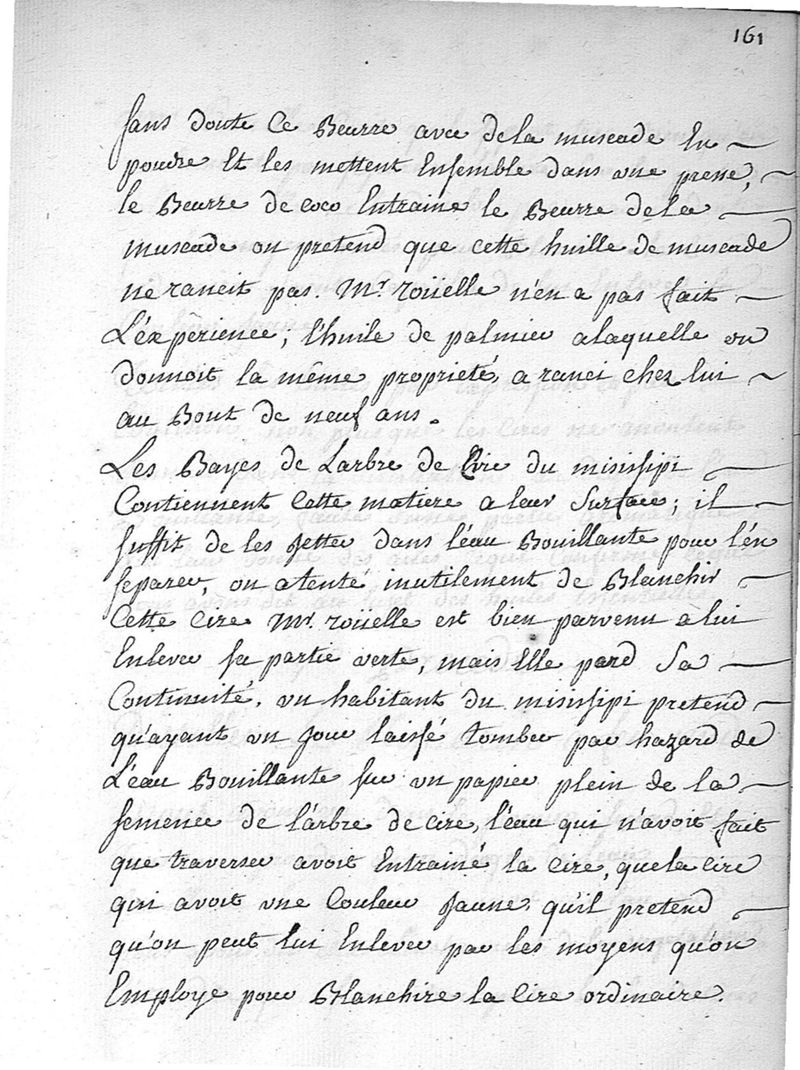 161
sans doute Ce Beurre avec dela muscade En
poudre Et les mettent Ensemble dans une presse,
le Beurre de coco Entraine le Beurre dela
muscade on pretend que cette huille de muscade
ne rancit pas. Mr. roüelle n'en a pas fait
L'éxpèrience; l'huile de palmier alaquelle on
donnoit la même proprieté, a ranci chez lui
au Bout de neuf ans.
Les Bayes de Larbre de Cire du misisipi
Contiennent Cette matiere a leur Surface; il
suffit de les jetter dans l'éau Bouillante pour l'én
separer, on a tenté inutilement de Blanchir
Cette Cire Mr. roüelle est bien parvenu a lui
Enlever sa partie verte, mais Elle perd Sa
Continuité, un habitant du misisipi pretend
qu'ayant un jour laissé tomber par hazard de
L'éau Bouillante sur un papier plein de la
semence de l'árbre de cire, l'éau qui n'avoit fait
que traverser avoit Entrainé la cire, quela cire
qui avoit une Couleur Jaune. qu'il pretend
qu'on peut lui Enlever par les moyens qu'on
Employe pour Blanchire la Cire ordinaire.